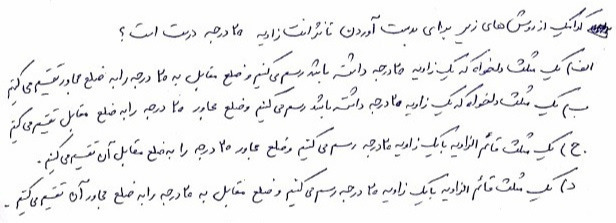 کدامیک از روش‌های زیر برای بدست آوردن تانژانت زاویه ۲۵ درجه درست است؟
الف) یک مثلث دلخواه که یک زاویه ۲۵ درجه داشته باشد رسم می‌کنیم و ضلع مقابل به ۲۵ درجه را به ضلع مجاور تقسیم می‌کنیم
ب) یک مثلث دلخواه که یک زاویه ۲۵ درجه داشته باشد رسم می‌کنیم و ضلع مجاور ۲۵ درجه را به ضلع مقابل تقسیم می‌کنیم
ج) یک مثلث قائم الزاویه با یک زاویه ۲۵ درجه رسم می‌کنیم و ضلع مجاور ۲۵ درجه را به ضلع مقابل آن تقسیم می‌کنیم.
د) یک مثلث قائم الزاویه با یک زاویه ۲۵ درجه رسم می‌کنیم و ضلع مقابل به ۲۵ درجه را به ضلع مجاور آن تقسیم می‌کنیم.